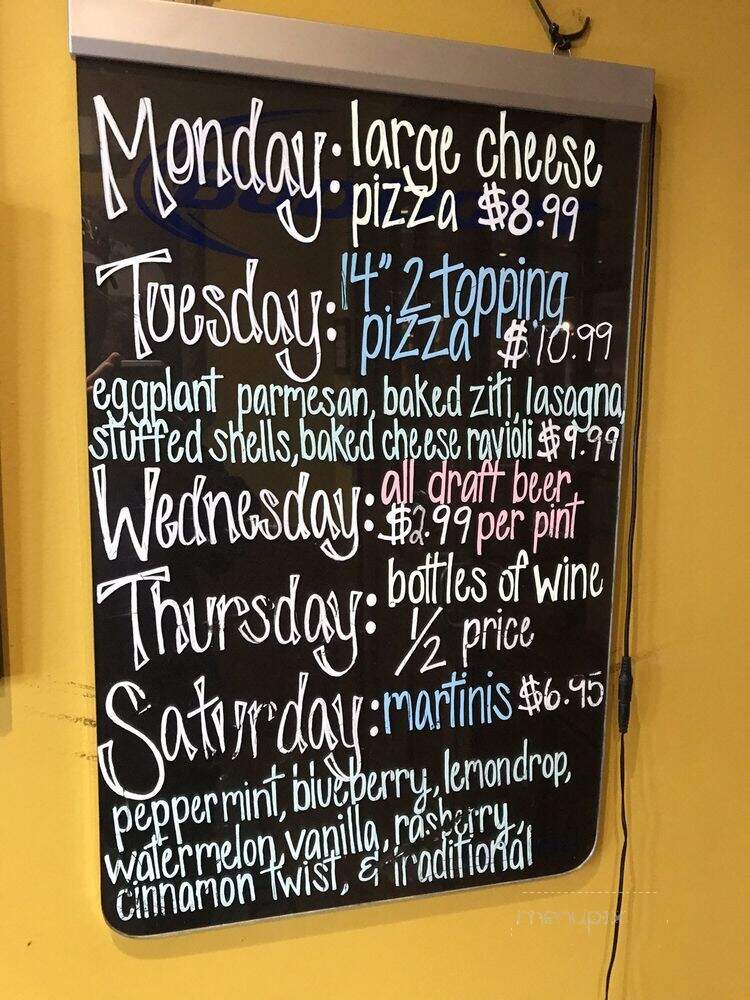 Monday: large cheese
pizza $8.99
Tuesday: 14" 2 topping
pizza $10.99
eggplant parmesan, baked ziti, lasagna,
stuffed shells, baked cheese ravioli $9.99
Wednesday: all draft beer
$2.99 per pint
Thursday: bottles of wine
1/2 price
Saturday: martinis $6.95
peppermint, blueberry, lemondrop,
watermelon, vanilla, rasberry,
cinnamon twist, & traditional
menupix